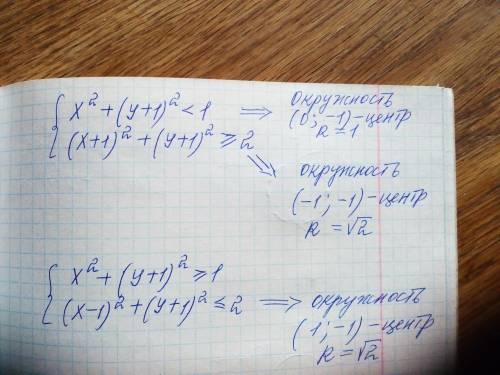 { x² + (y+1)² < 1 ⟹ окружность
(0; -1) - центр
R = 1
(x+1)² + (y+1)² ≥ 2
⟹ окружность
(-1; -1) - центр
R = √2
{ x² + (y+1)² ≥ 1
(x-1)² + (y+1)² ≤ 2 ⟹ окружность
(1; -1) - центр
R = √2